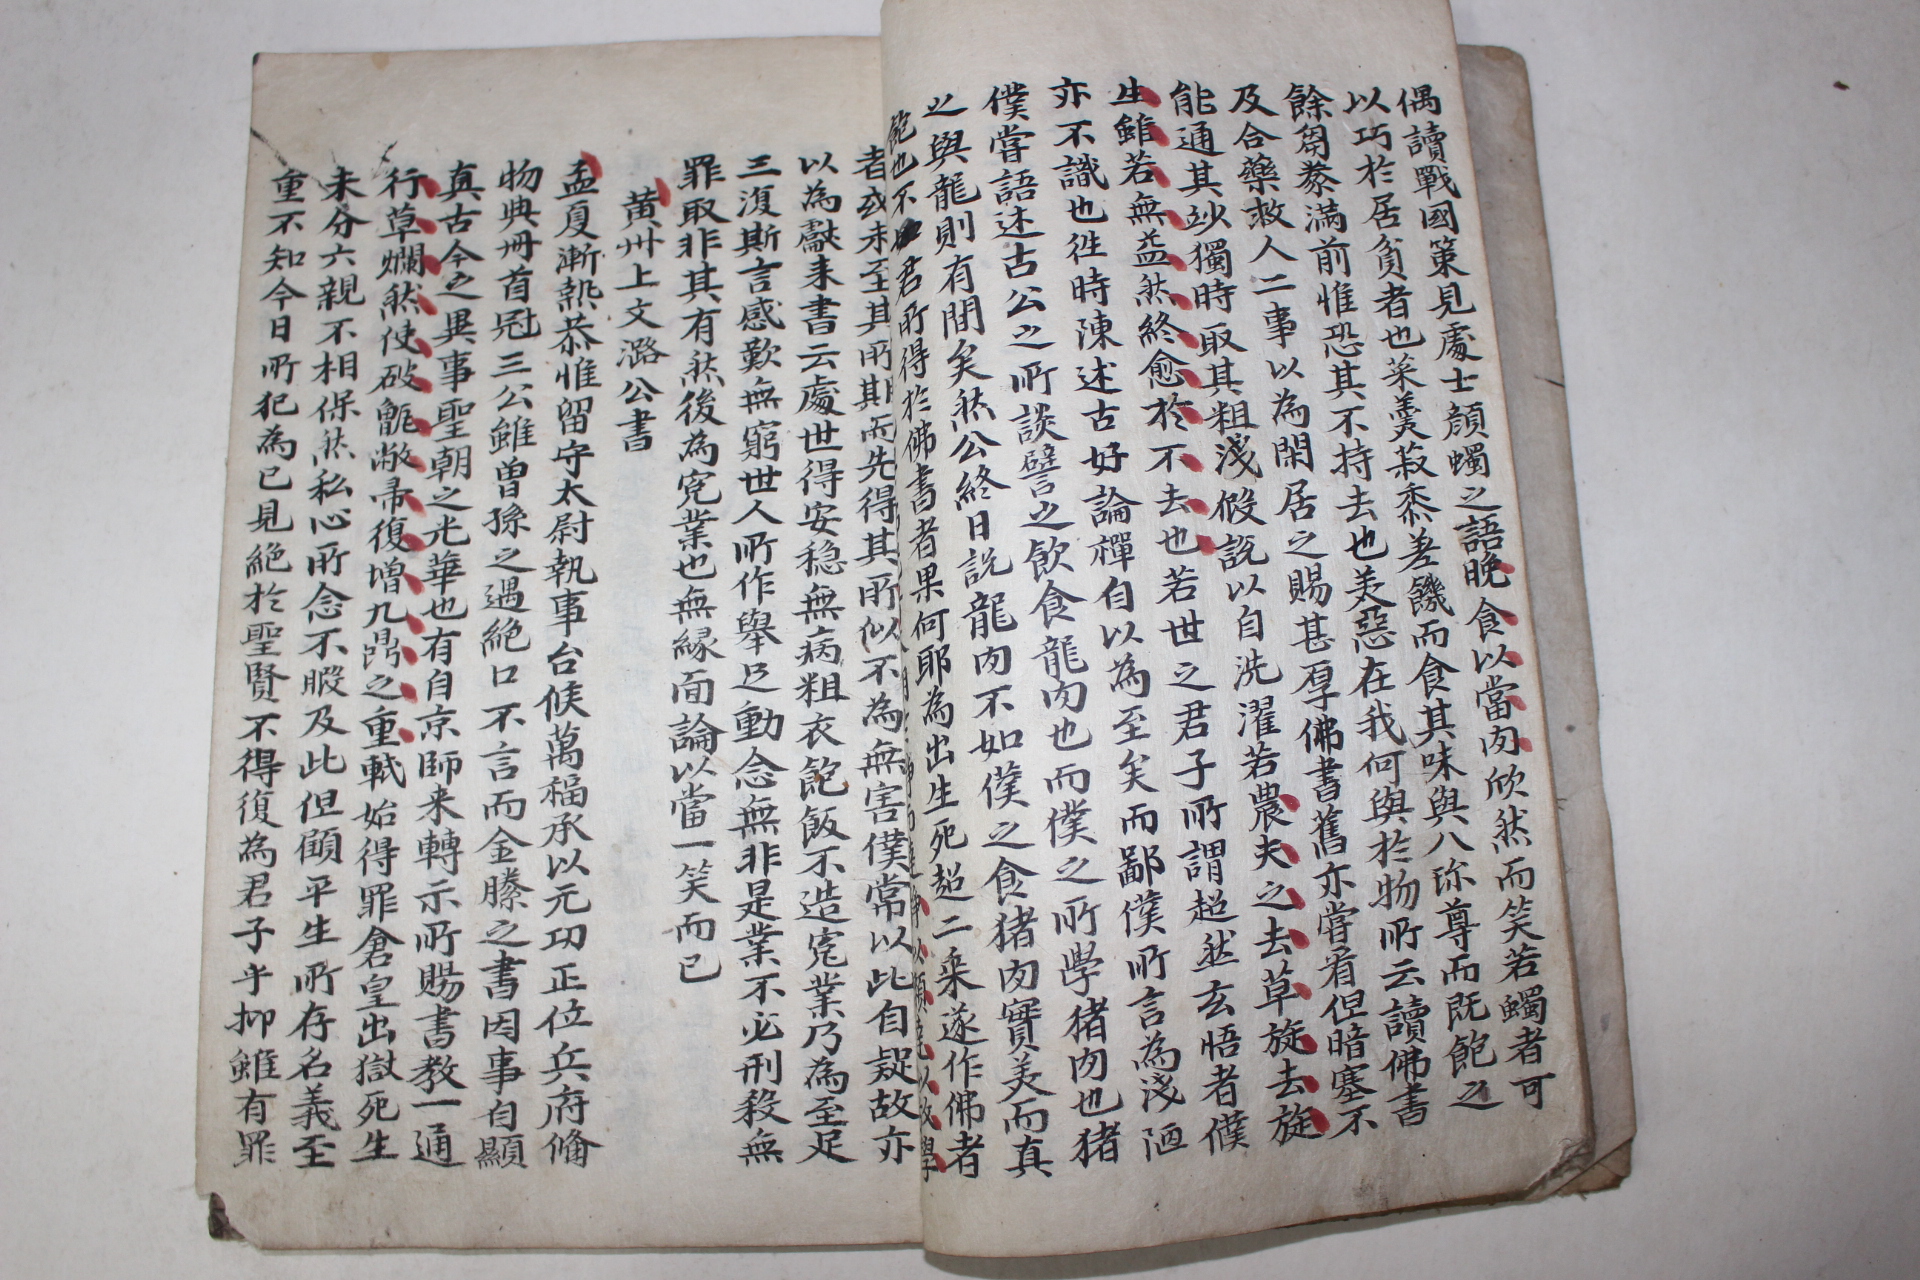 偶讀戰國策見處士顔蠋之語晚食以當肉欣然而笑若蠋者可
以巧於居貧者也菜羹菽黍差饑而食其味與八珎尊而既飽之
餘芻豢滿前惟恐其不持去也美惡在我何與於物所云讀佛書
及合藥救人二事以為閑居之賜甚厚佛書舊亦嘗看但暗塞不
能通其玅獨時取其粗淺假說以自洗濯若農夫之去草旋去旋
生雖若無益然終愈於不去也若世之君子所謂超然玄悟者僕
亦不識也徃時陳述古好論禪自以為至矣而鄙僕所言為淺陋
僕嘗語述古公之所談譬之飲食龍肉也而僕之所學猪肉也猪
之與龍則有間矣然公終日說龍肉不如僕之食猪肉實美而真
飽也不 君所得於佛書者果何耶為出生死超二乘遂作佛者
者或未至其所期而先得其所似不為無害僕常以此自疑故亦
以為獻来書云處世得安稳無病粗衣飽飯不造寃業乃為至足
三復斯言感歎無窮世人所作舉足動念無非是業不必刑殺無
罪取非其有然後為寃業也無縁面論以當一笑而已
黃州上文潞公書
孟夏漸熱恭惟留守太尉執事台候萬福承以元功正位兵府俻
物典冊首冠三公雖曾孫之遇絕口不言而金縢之書因事自顯
真古今之異事聖朝之光華也有自京師来轉示所賜書教一通
行草爛然使破甑敝帚復增九鼎之重軾始得罪倉皇出獄死生
未分六親不相保然私心所念不暇及此但顧平生所存名義至
重不知今日所犯為已見絕於聖賢不得復為君子乎抑雖有罪